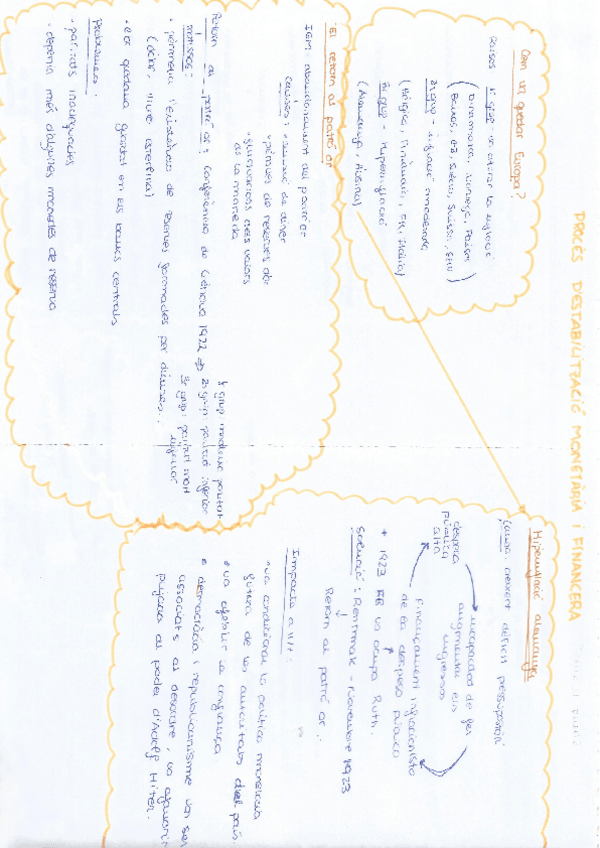 PROCÉS D'ESTABILITZACIÓ MONETÀRIA I FINANCERA
Com va quedar Europa?
Països 1r grup - va evitar la inflació
(Dinamarca, Noruega, Països
Baixos, GB, Suècia, Suïssa, EEUU)
2n grup - inflació moderada
(Bèlgica, Finlàndia, FR, Itàlia)
3r grup - hiperinflació
(Alemanya, Àustria)
El retorn al patró or
IGM: abandonament del patró or
Causes: emissió de diner
pèrdues de reserves d'or
fluctuacions dels valors
de la moneda
Retorn al patró or: Conferència de Gènova 1922
1r grup mateixa paritat
2n grup paritat inferior
3r grup: paritat molt
inferior
permetia l'existència de reserves formades per divises.
(dòlar, lliure esterlina)
l'or quedava guardat en els bancs centrals
Problemes:
paritats inadequades
depenia més d'algunes monedes de reserva
Hiperinflació alemanya
Causa: creixent dèficit pressupostari
despesa
pública
alta
incapacitat de fer
augmentar els
ingressos
Finançament inflacionista
de la despesa pública
+ 1923 FR va ocupar Ruth.
Solució: Rentenmark - Novembre 1923
Retorn al patró or.
Impacte a ll/t:
va condicionar la política monetària
futura de les autoritats del país.
va afeblir la confiança
democràcia i republicanisme van ser
associats al desordre, va afavorir
pujada al poder d'Adolf Hitler.